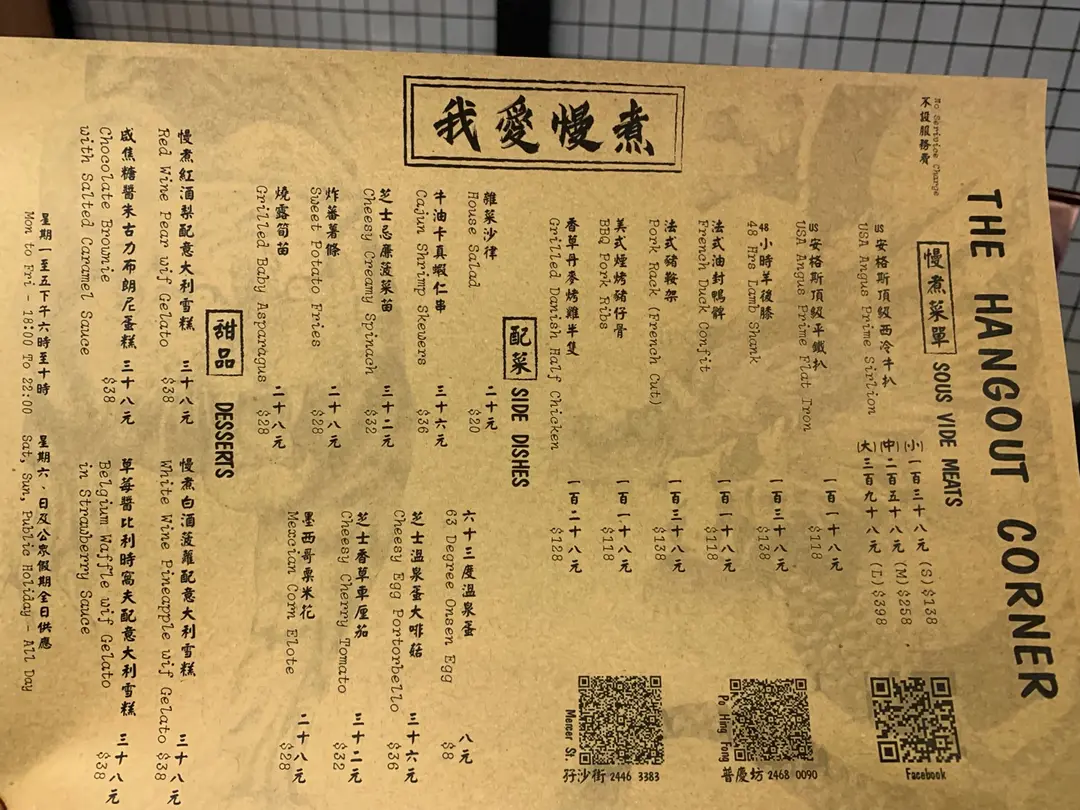 THE HANGOUT CORNER
No Serivice Charge
不設服務費
我愛慢煮
慢煮菜單 SOUS VIDE MEATS
US安格斯頂級西冷牛扒
USA Angus Prime Sirlion
(小)一百三十八元 (S)$138
(中)二百五十八元 (M)$258
(大)三百九十八元 (L)$398
US安格斯頂級平鐵扒 一百一十八元
USA Angus Prime Flat Iron $118
48小時羊後膝 一百三十八元
48 Hrs Lamb Shank $138
法式油封鴨髀 一百一十八元
French Duck Confit $118
法式豬鞍架 一百三十八元
Pork Rack (French Cut) $138
美式煙烤豬仔骨 一百一十八元
BBQ Pork Ribs $118
香草丹麥烤雞半隻 一百二十八元
Grilled Danish Half Chicken $128
配菜 SIDE DISHES
雜菜沙律 二十元
House Salad $20
牛油卡真蝦仁串 三十六元
Cajun Shrimp Skewers $36
芝士忌廉菠菜苗 三十二元
Cheesy Creamy Spinach $32
炸蕃薯條 二十八元
Sweet Potato Fries $28
燒露筍苗 二十八元
Grilled Baby Asparagus $28
六十三度温泉蛋 八元
63 Degree Onsen Egg $8
芝士温泉蛋大啡菇 三十六元
Cheesy Egg Portorbello $36
芝士香草車厘茄 三十二元
Cheesy Cherry Tomato $32
墨西哥粟米花 二十八元
Mexcian Corn Elote $28
甜品 DESSERTS
慢煮紅酒梨配意大利雪糕 三十八元
Red Wine Pear wif Gelato $38
咸焦糖醬朱古力布朗尼蛋糕 三十八元
Chocolate Brownie $38
with Salted Caramel Sauce
慢煮白酒菠蘿配意大利雪糕 三十八元
White Wine Pineapple wif Gelato $38
草莓醬比利時窩夫配意大利雪糕 三十八元
Belgium Waffle wif Gelato $38
in Strawberry Sauce
星期一至五下午六時至十時 星期六、日及公眾假期全日供應
Mon to Fri - 18:00 To 22:00 Sat, Sun, Public Holiday - All Day
Facebook
Po Hing Fong
普慶坊 2468 0090
Mercer St.
孖沙街 2446 3383